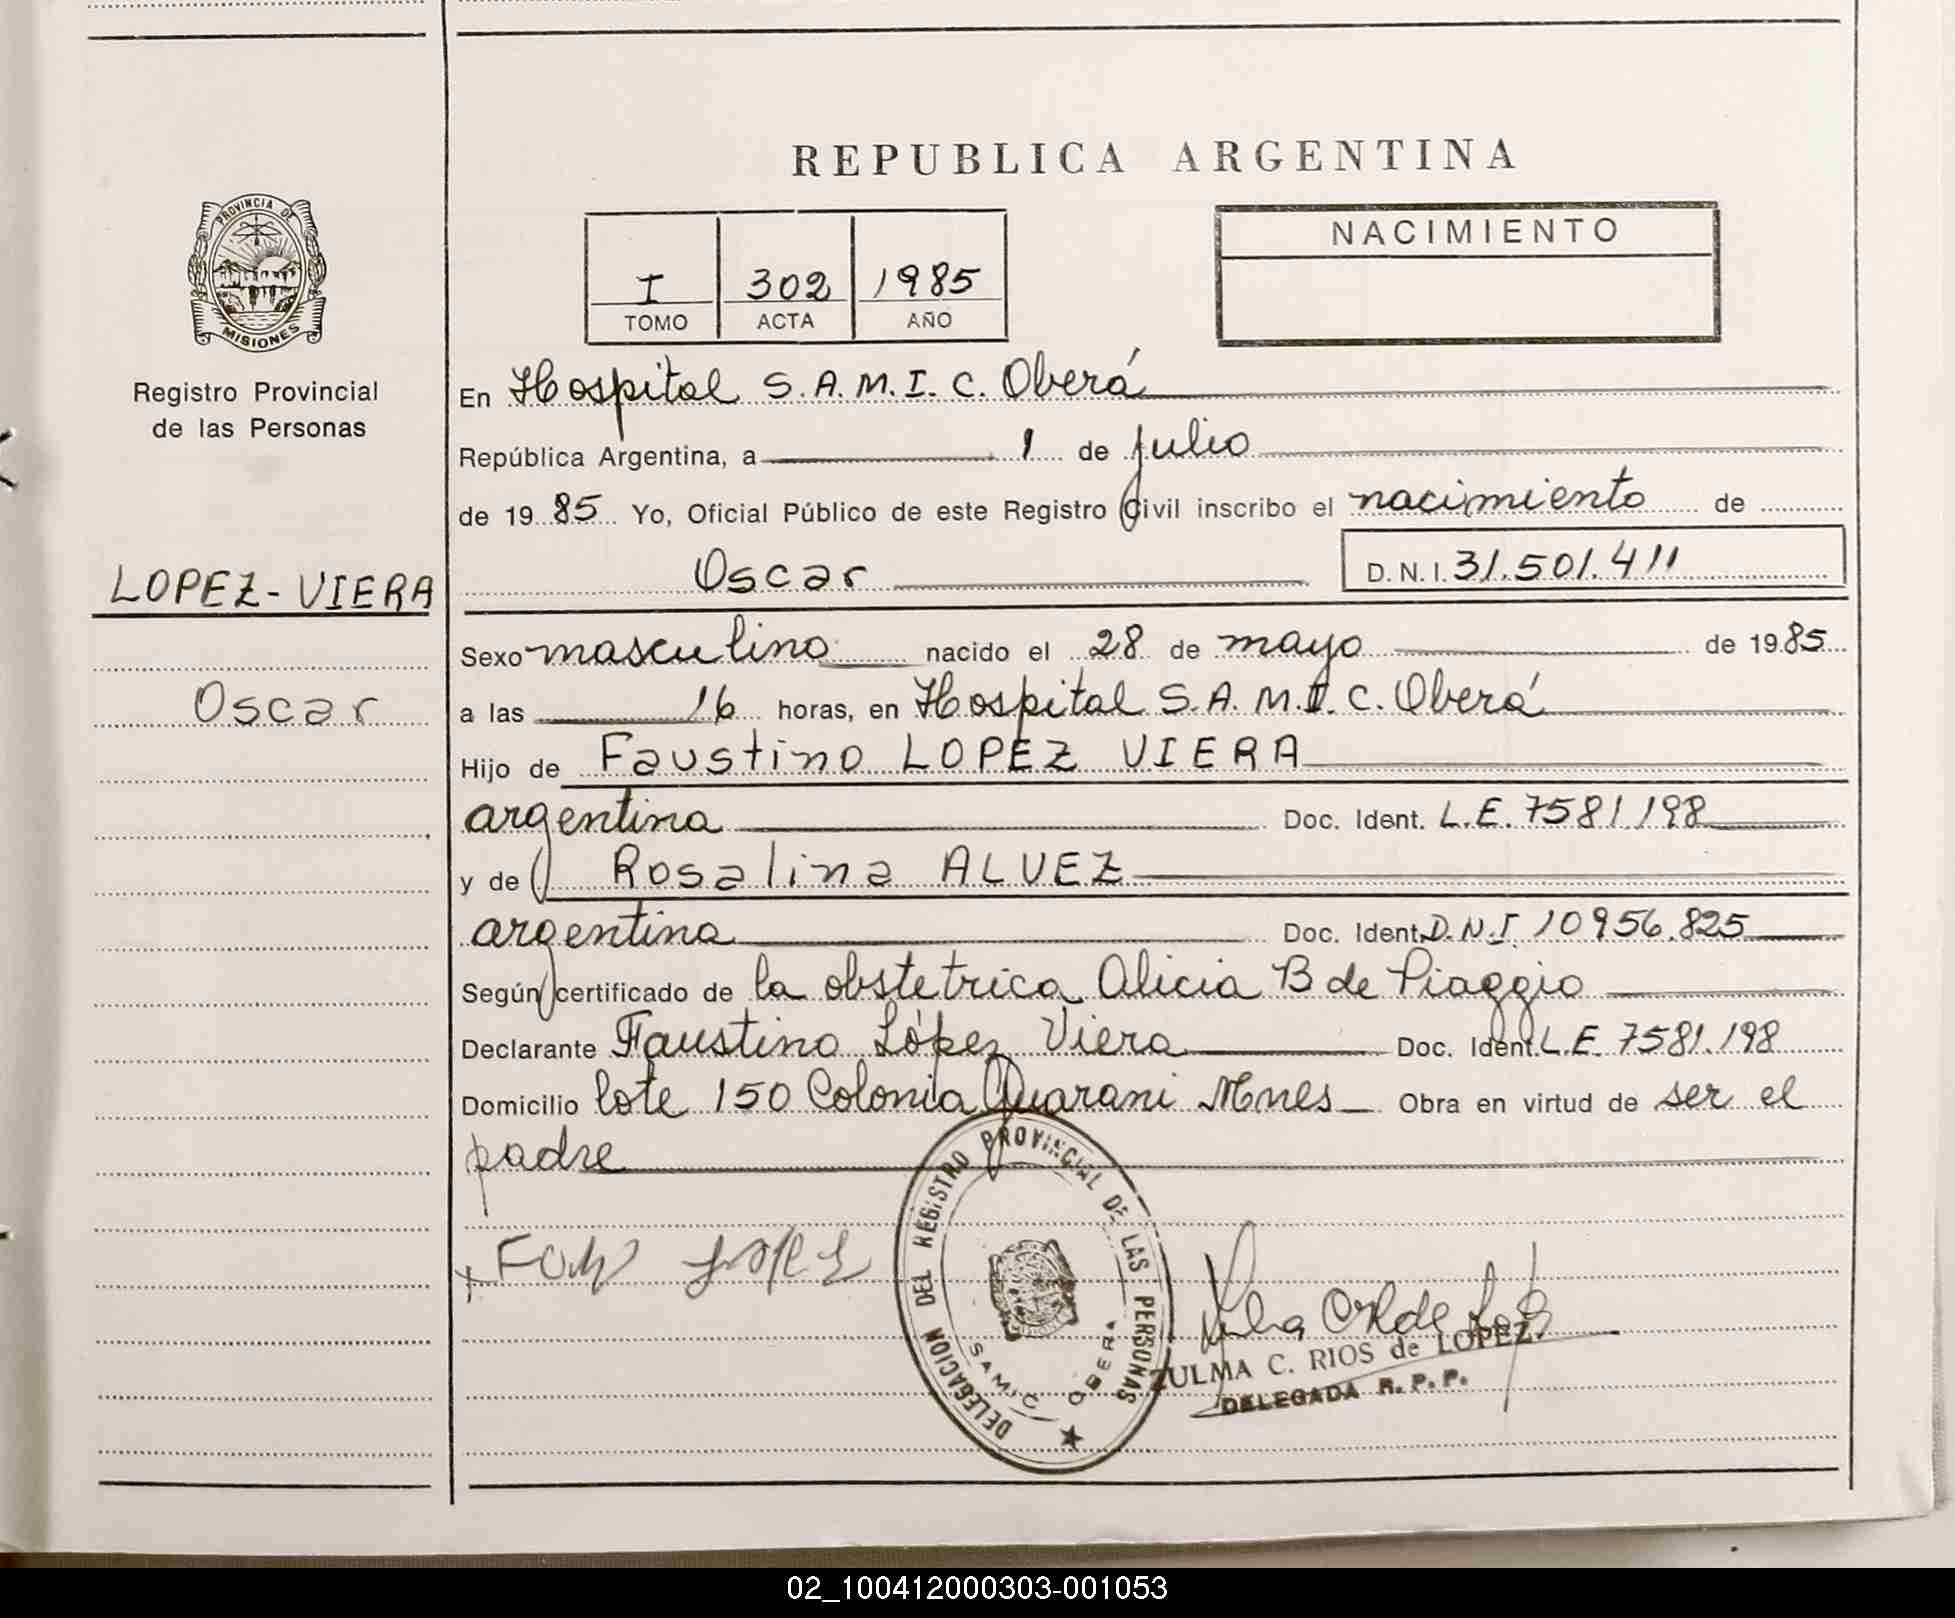 REPUBLICA ARGENTINA
PROVINCIA DE
MISIONES
Registro Provincial
de las Personas
I 302 1985
TOMO ACTA AÑO
NACIMIENTO
En Hospital S.A.M.I.C. Oberá
República Argentina, a 1 de julio
de 1985 Yo, Oficial Público de este Registro Civil inscribo el nacimiento de
Oscar D.N.I. 31.501.411
LOPEZ-VIERA
Oscar
Sexo masculino nacido el 28 de mayo de 1985
a las 16 horas, en Hospital S.A.M.I.C. Oberá
Hijo de Faustino LOPEZ VIERA
argentina Doc. Ident. L.E. 7581198
y de Rosalina ALVEZ
argentina Doc. Ident. D.N.I. 10956.825
Según certificado de la obstetrica Alicia B de Piaggio
Declarante Faustino López Viera Doc. Ident. L.E. 7581.198
Domicilio lote 150 Colonia Guarani Mnes Obra en virtud de ser el
padre
DELEGACION DEL REGISTRO PROVINCIAL DE LAS PERSONAS
SAMIC OBERA
ZULMA C. RIOS de LOPEZ
DELEGADA R.P.P.
02_100412000303-001053